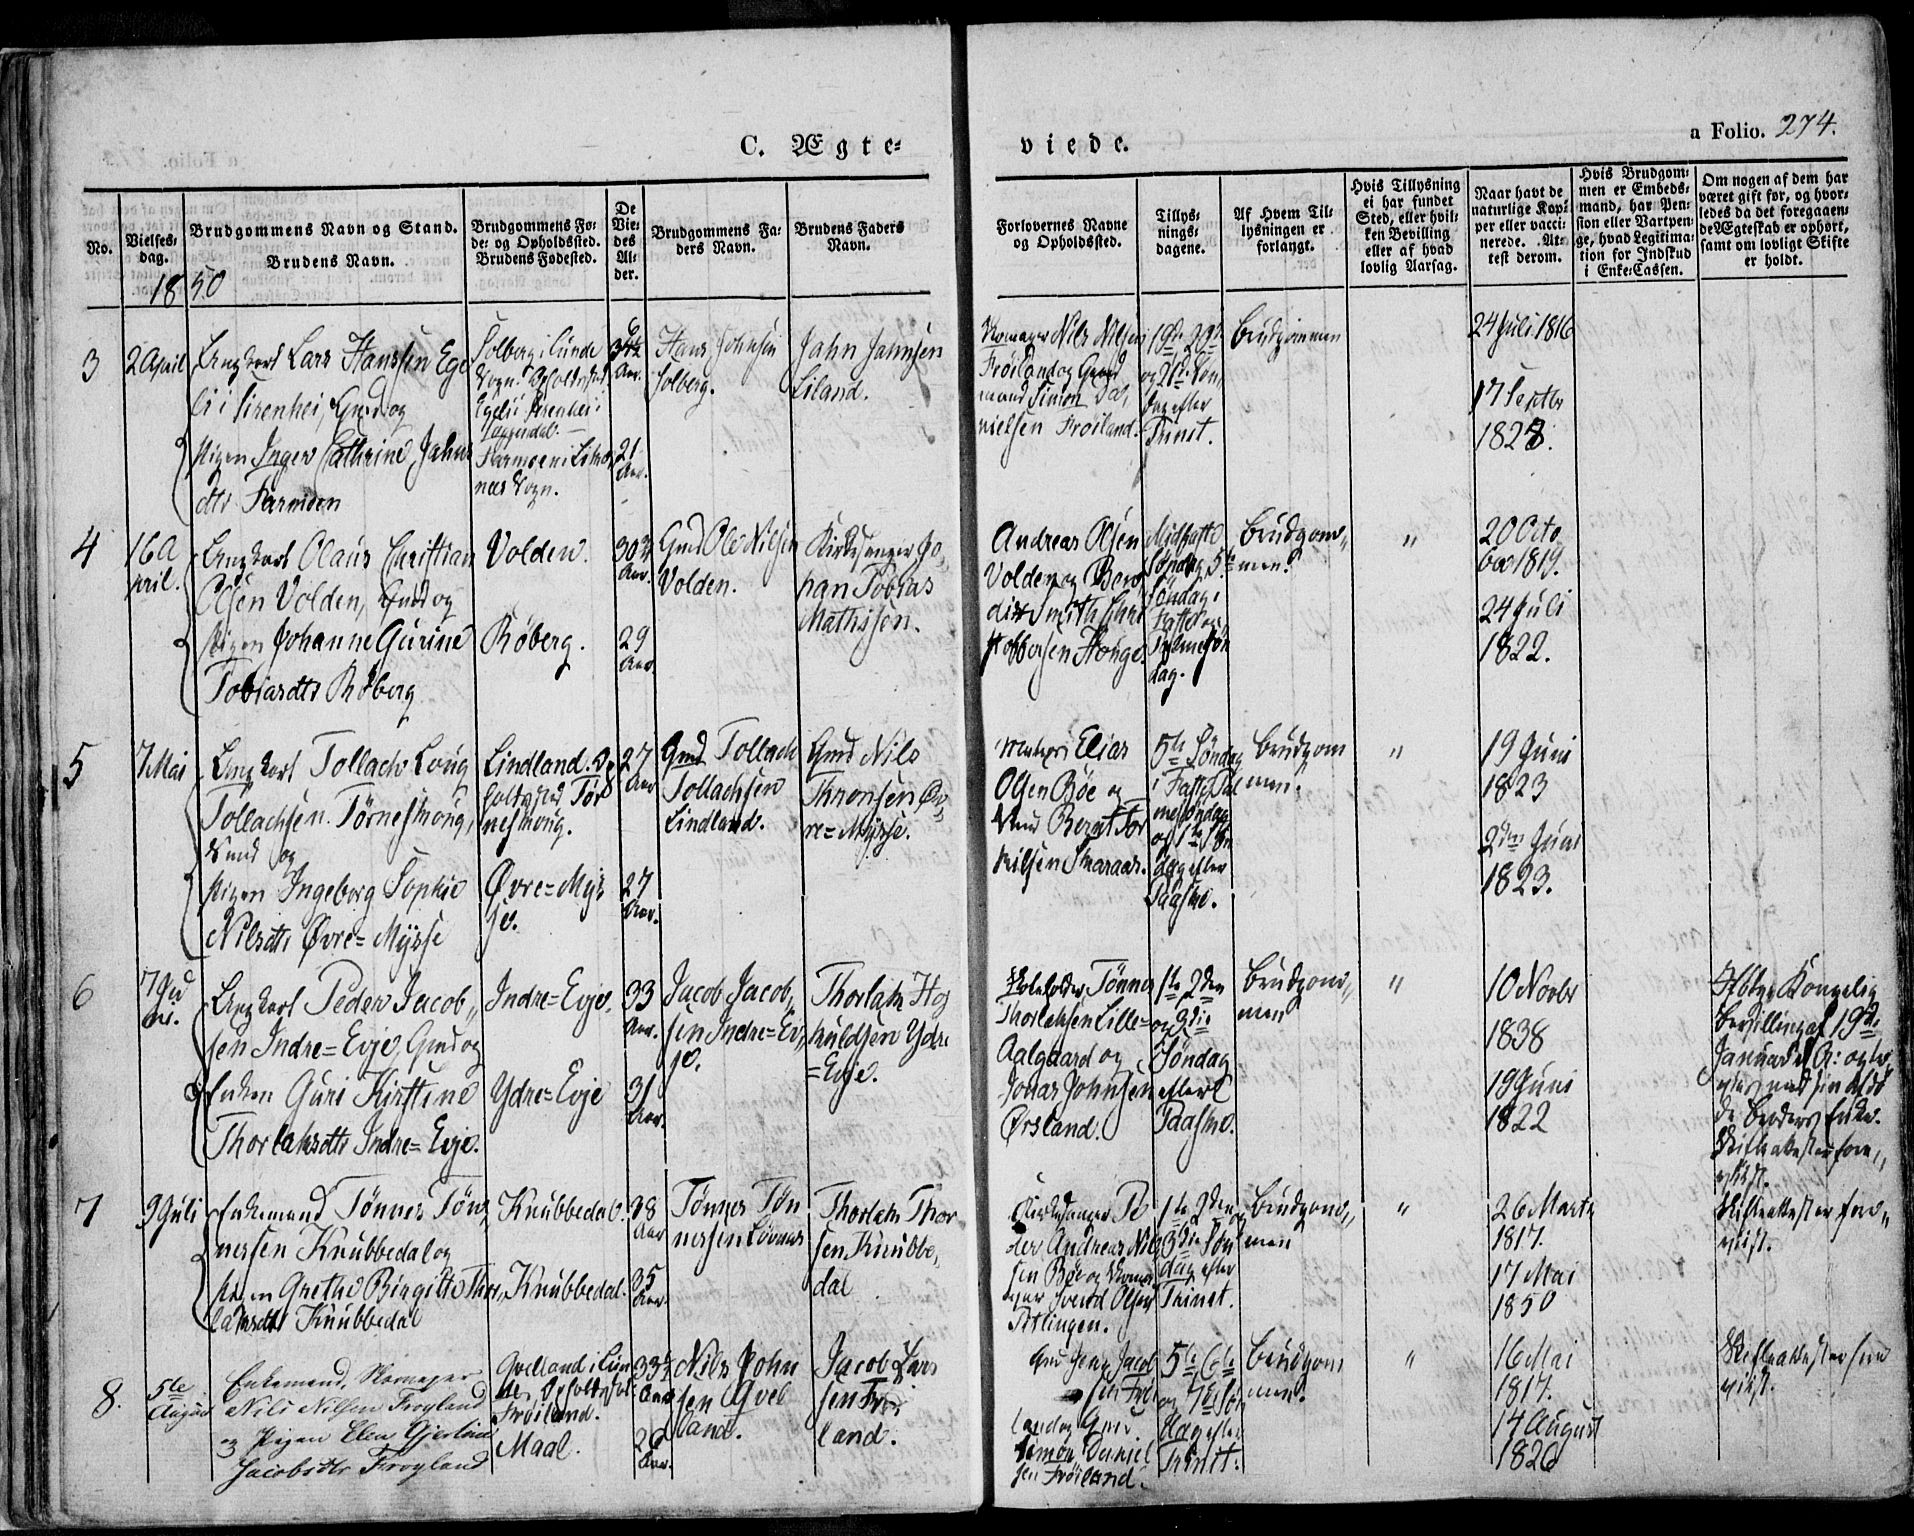 C. Ægte-
viede.
a Folio. 274.
No.
Vielses-
dag.
Brudgommens Navn og Stand.
Brudens Navn.
Brudgommens Fø-
de- og Opholdssted.
Brudens Fødested.
De
Vie-
des
Al-
der.
Brudgommens Fa-
ders Navn.
Brudens Faders
Navn.
Forlovernes Navne
og Opholdssted.
Tillys-
nings-
dagene.
Af Hvem Til-
lysningen er
forlangt.
Hvis Tillysning
ei har fundet
Sted, eller hvil-
ken Bevilling
eller af hvad
lovlig Aarsag.
Naar havt de
naturlige Kop-
per eller vacci-
nerede. At-
test derom.
Hvis Brudgom-
men er Embeds-
mand, har Pen-
sion eller Vartpen-
ge, hvad Legitima-
tion for Indskud
i Enke-Cassen.
Om nogen af dem har
været gift før, og hvor-
ledes da det foregaaen-
de Ægteskab er ophørt,
samt om lovligt Skifte
er holdt.
1850
3
2 April
Ungkarl Lars Hanssen Ege
li i Sirenhei, Gmd og
Pigen Inger Cathrine Jahns
dtr Farmoen
Solberg i Lunde
Sogn. Opholdssted
Egeli i Sirenhei i
21
Aar.
Hans Johnsen
Solberg.
Jahn Jahnsen
Eiland.
Nils Nilsen
Frøiland og Gmd
mand Simon Da,
nielsen Frøiland.
og 21de Søn,
dag efter
Trinit.
Brudgommen
24 Juli 1816
17 Septbr
1828.
4
16 A
pril.
Ungkarl Olaus Christian
Olsen Volden, Gmd og
Pigen Johanne Gurine
Tobiasdtr Røberg
Volden.
Røberg.
29
Aar
Gmd Ole Nilsen
Volden.
Kirkesanger Jo,
han Tobias
Mathissen.
Andreas Olsen
Volden og Bern
Søndag 5te
Søndag i
Faste og
Palmesøn
dag.
Brudgom,,
men.
"
20 Octo
ber 1819.
24 Juli
1822.
5
7 Mai
Ungkarl Tollach Long
Tollachsen Tørnesmong,
Smed og
Pigen Ingeborg Sophie
Nilsdtr Øvre=Mysse
Lindland. Op
holdssted Tør
nesmong.
Øvre=Mys
se.
27
Aar
27
Aar.
Gmd Tollach
Tollachsen
Lindland.
Gmd Nils
Thronsen Øv,,
re=Mysse.
Elias
Olsen Bøe og
Smed Bernt Tor
kilsen Skaraas.
5te Søndag
i Faste, Pal
mesøndag
og 1ste Søn
dag efter
Paaske.
Brudgom
men.
"
19 Juni
1823
2den Juni
1823.
6
7 Ju
ni.
Ungkarl Peder Jacob,,
sen Indre=Evje, Gmd og
Enken Guri Kirstine
Thorlaksdtr Indre=Evje.
Indre=Evje.
Ydre=Evje
33
Aar.
31
Aar.
Jacob Jacob,,
sen Indre=Ev,,
je.
Thorlak Ho
skuldsen Ydre
=Evje.
Skoleholder Tønnes
Thorlaksen Lille=
Aalgaard og
Jonas Johnsen
Ørsland.
1ste 2den
og 3die
Søndag
efter
Paaske.
Brudgom,,
men
"
10 Novbr
1838
19 Juni
1822
Efter Kongelig
Bevilling af 19de
Januar d. A: og
med sin afdø
de Broders Enke.
Skifteattest er fore,,
viist.
7
9 Juli
Enkemand Tønnes Tøn,
nessen Knubbedal og
Pigen Grethe Birgitte Thor,
laksdtr Knubbedal
Knubbedal.
Knubbedal.
38
Aar
35
Aar.
Tønnes Tøn
nessen Løvaas
Thorlak Thor
sen Knubbe,
dal
Kirkesanger Pe
der Andreas Nil
sen Bøe og
Sverd Olsen
1ste 2den og
3die Søn
dag efter
Trinit.
Brudgom,,
men
"
26 Marts
1817.
17 Mai
1850
Skifteattest er fore,,
viist.
8.
5te
August
Enkemand, Skomager
Nils Nilsen Frøyland
og Pigen Elen Gjerline
Jacobsdtr Frøyland
Qvelland i Lun
de, Opholdssted
Frøiland.
Maal.
33½
Aar
26
Aar.
Nils John
sen Qvel
land.
Jacob Lars
sen Frøi
land.
Jacob
sen Frøi
land og Gmd.
Simon Daniel
sen Frøiland.
5te 6te
og 7de Søn
dag efter
Trinit.
Brudgom
men.
"
16 Mai
1817.
14 August
1826
Skifteattest er fore
viist.